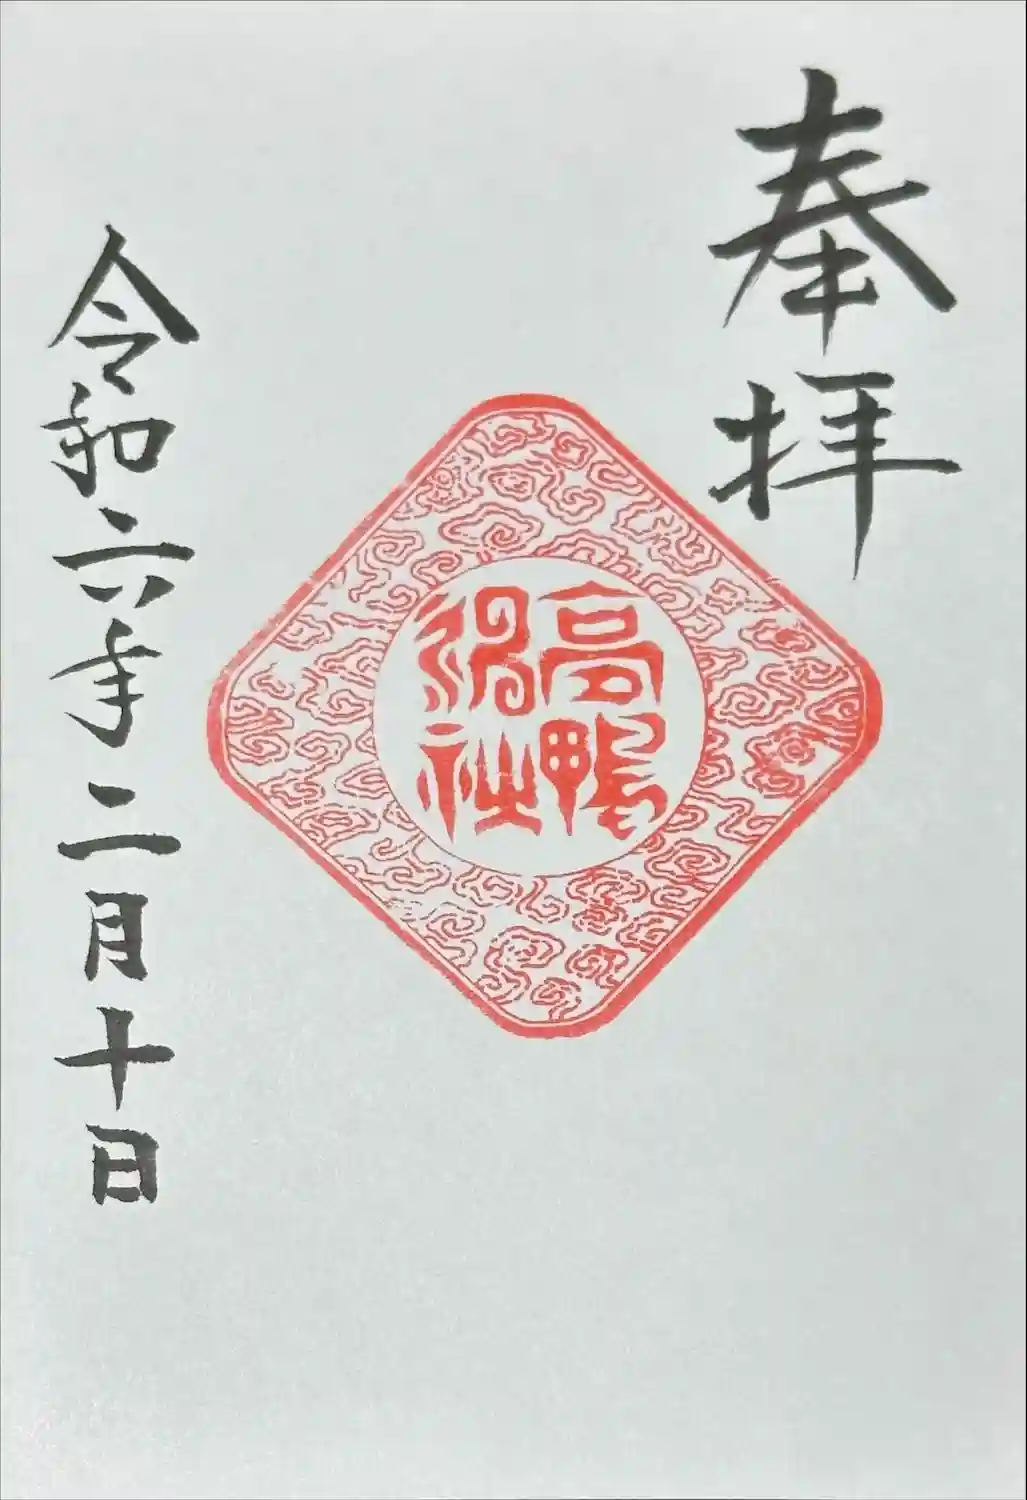 奉拝
高鴨
神社
令和六年二月十日